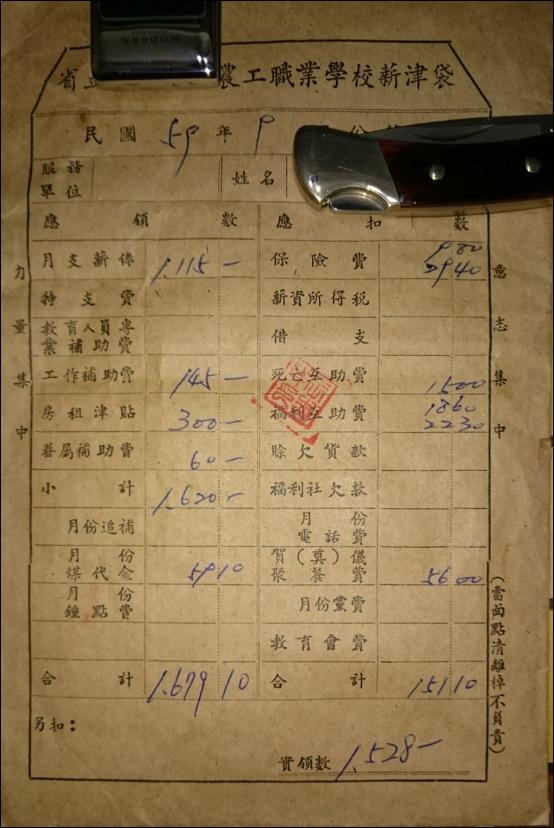 MODERN
省立 農工職業學校薪津袋
民國 59 年 9 月份
服務單位 姓名
應領數 應扣數
月支薪俸 1.115- 保險費 980 2940
特支費 薪資所得稅
教育人員專業補助費 借支
工作補助費 145- 死亡互助費 1500
房租津貼 300- 福利互助費 1860 2230
眷屬補助費 60- 賒欠貨款
小計 1.620- 福利社欠款
月份追補 月份電話費
月份煤代金 5910 賀(奠)儀聚餐費 5600
月份鐘點費 月份黨費
教育會費
合計 1.679 10 合計 151 10
另扣:
實領數 1.528-
力量集中
意志集中
(當面點清離棹不負責)